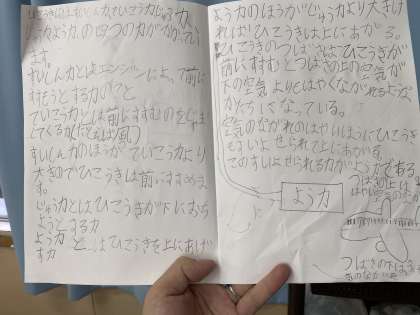 ひこうきはすいしん力、ていこう力、じゅう力、
よう力の四つの力がかかってい
ます。
すいしん力とはエンジンによって前に
すすもうとする力のこと
ていこう力とは前にすすむのをじゃま
してくる力(たとえば風)
すいしん力のほうがていこう力より
大きのでひこうきは前にすすめま
す。
じゅう力とはひこうきが下にむら
ようとする力
よう力と はひこうきを上にあげ
す力
よう力のほうがじゅう力より大きけ
ればひこうきは上にあがる。
ひこうきのつばさはひこうきが
前にすすむとつばさの上の空気が
下の空気よりもはやくながれるような
かたちになっている。
空気のながれのはやいほうにひこうき
もすいよせられて上にあがる。
このすいよせられる力がよう力である。
よう力
つばさの上は
つばさの下は
気のながれ